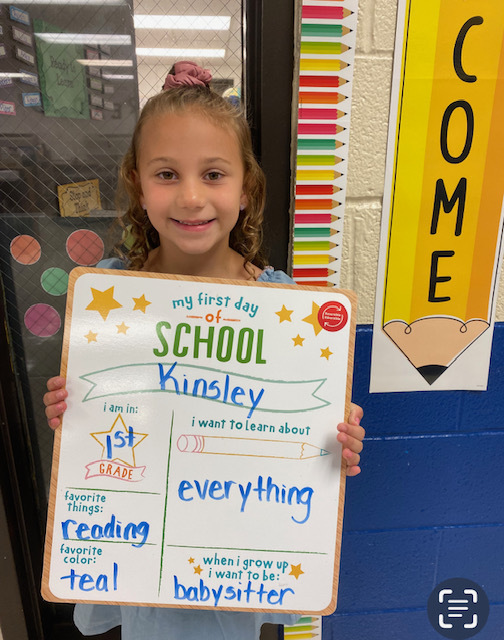 COME
my first day
of
SCHOOL
Kinsley
i am in:
1st
GRADE
i want to learn about
everything
favorite
things:
reading
favorite
color:
teal
when i grow up
i want to be:
babysitter